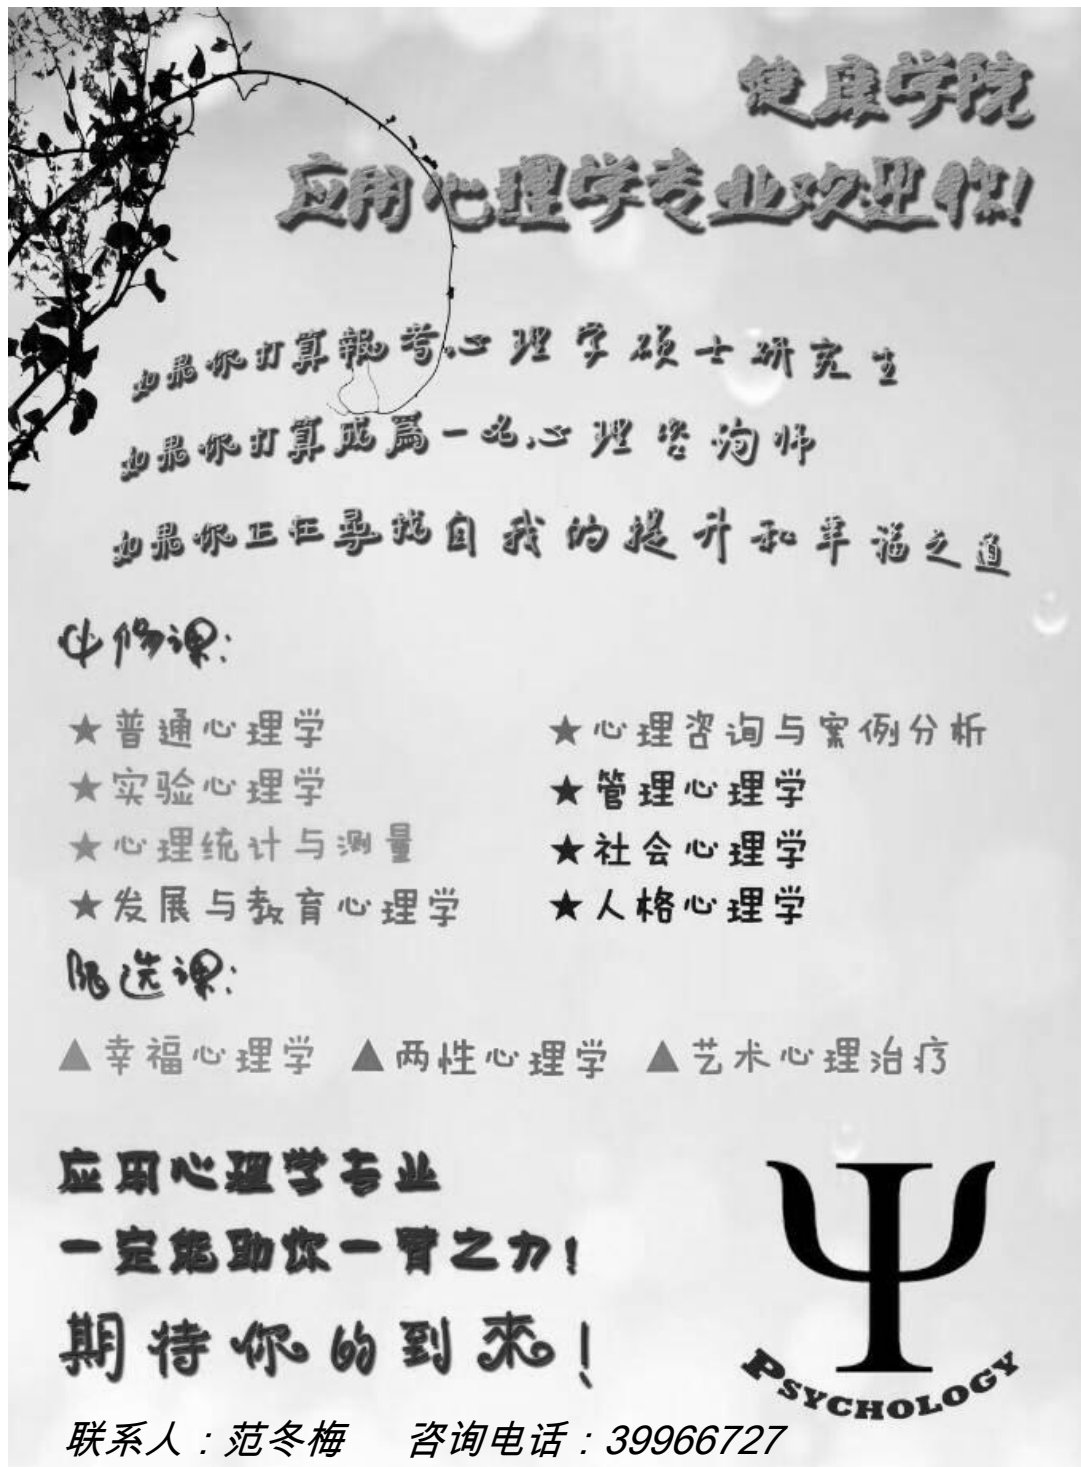 健康学院
应用心理学专业欢迎你!
如果你打算報考心理学硕士研究生
如果你打算成爲一名心理咨询师
如果你正在寻找自我的提升和幸福之道
必修课:
★普通心理学
★实验心理学
★心理统计与测量
★发展与教育心理学
★心理咨询与案例分析
★管理心理学
★社会心理学
★人格心理学
限选课:
▲幸福心理学 ▲两性心理学 ▲艺术心理治疗
应用心理学专业
一定能助你一臂之力!
期待你的到來!
Ψ
PSYCHOLOGY
联系人:范冬梅 咨询电话:39966727